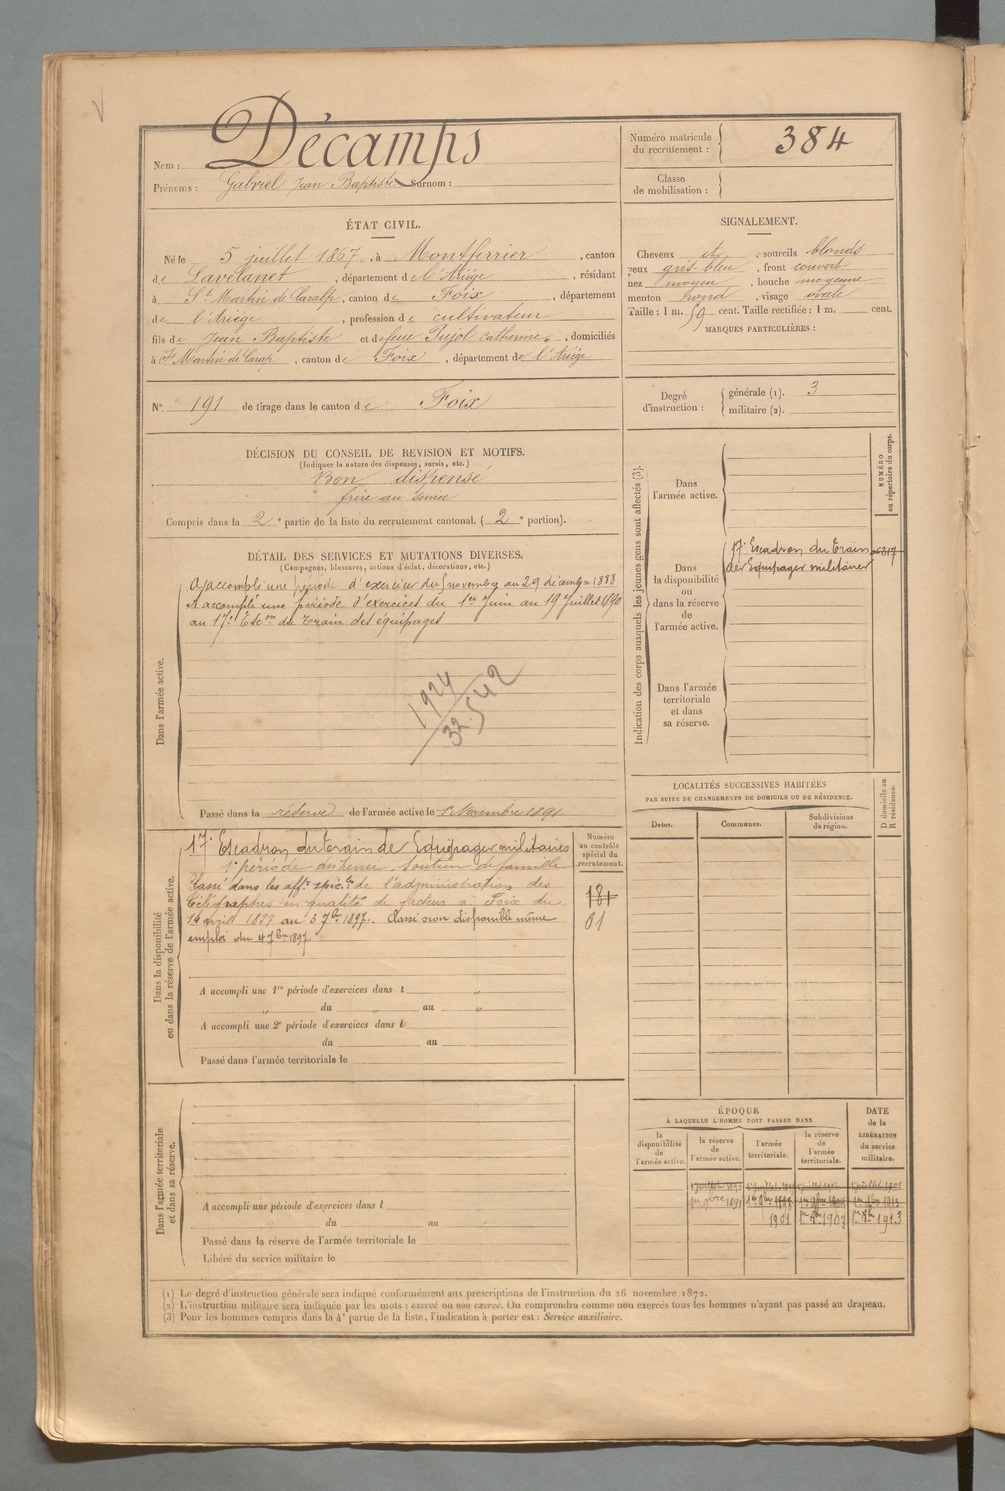 Nom : Décamps
Prénoms : Gabriel Jean Baptiste Surnom :
Numéro matricule du recrutement : 384
Classe de mobilisation :
ÉTAT CIVIL.
Né le 5 juillet 1867, à Montferrier, canton
de Lavelanet, département de l'Ariége, résidant
à St Martin de Caralp, canton de Foix, département
de l'Ariége, profession de cultivateur
fils de Jean Baptiste et de feue Pujol Catherine, domiciliés
à St Martin de Carap, canton de Foix, département de l'Ariége
SIGNALEMENT.
Cheveux et, sourcils blonds
yeux gris bleu, front couvert
nez moyen, bouche moyenne
menton rond, visage ovale
Taille : 1 m. 59 cent. Taille rectifiée : 1 m. cent.
MARQUES PARTICULIÈRES :
N° 191 de tirage dans le canton de Foix
Degré d'instruction :
générale (1). 3
militaire (2).
DÉCISION DU CONSEIL DE REVISION ET MOTIFS.
(Indiquer la nature des dispenses, sursis, etc.)
Bon dispensé
frère au service
Compris dans la 2e partie de la liste du recrutement cantonal. (2e portion).
DÉTAIL DES SERVICES ET MUTATIONS DIVERSES.
(Campagnes, blessures, actions d'éclat, décorations, etc.)
Dans l'armée active.
A accompli une période d'exercices du 5 novembre au 29 décembre 1888
A accompli une période d'exercices du 1er Juin au 19 Juillet 1890
au 17e Esc on du Train des équipages
1924
32.542
Passé dans la réserve de l'armée active le 1er Novembre 1891
Indication des corps auxquels les jeunes gens sont affectés (3).
NUMÉRO au répertoire du corps.
Dans l'armée active.
Dans la disponibilité ou dans la réserve de l'armée active.
17e Escadron du Train
des Equipages militaires
Dans l'armée territoriale et dans sa réserve.
Dans la disponibilité ou dans la réserve de l'armée active.
17e Escadron du Train des Equipages militaires
1e période dispensé, Soutien de famille
Classé dans les aff.s spéc.les de l'administration des
Télégraphes en qualité de facteur à Foix du
14 avril 1897 au 3 7bre 1897. Classé non disponible même
emploi du 4 7bre 1897.
Numéro au contrôle spécial du recrutement.
181
61
A accompli une 1re période d'exercices dans l „
„ du „ au „
A accompli une 2e période d'exercices dans l
du au
Passé dans l'armée territoriale le
LOCALITÉS SUCCESSIVES HABITÉES
PAR SUITE DE CHANGEMENTS DE DOMICILE OU DE RÉSIDENCE.
Dates.
Communes.
Subdivisions de région.
D domicile ou R résidence.
Dans l'armée territoriale et dans sa réserve.
A accompli une période d'exercices dans l
du au
Passé dans la réserve de l'armée territoriale le
Libéré du service militaire le
ÉPOQUE
À LAQUELLE L'HOMME DOIT PASSER DANS
la disponibilité de l'armée active.
la réserve de l'armée active.
l'armée territoriale.
la réserve de l'armée territoriale.
DATE de la LIBÉRATION du service militaire.
1er 9bre 1891
1901
1913
(1) Le degré d'instruction générale sera indiqué conformément aux prescriptions de l'instruction du 26 novembre 1872.
(2) L'instruction militaire sera indiquée par les mots : exercé ou non exercé. On comprendra comme non exercés tous les hommes n'ayant pas passé au drapeau.
(3) Pour les hommes compris dans la 4e partie de la liste, l'indication à porter est : Service auxiliaire.